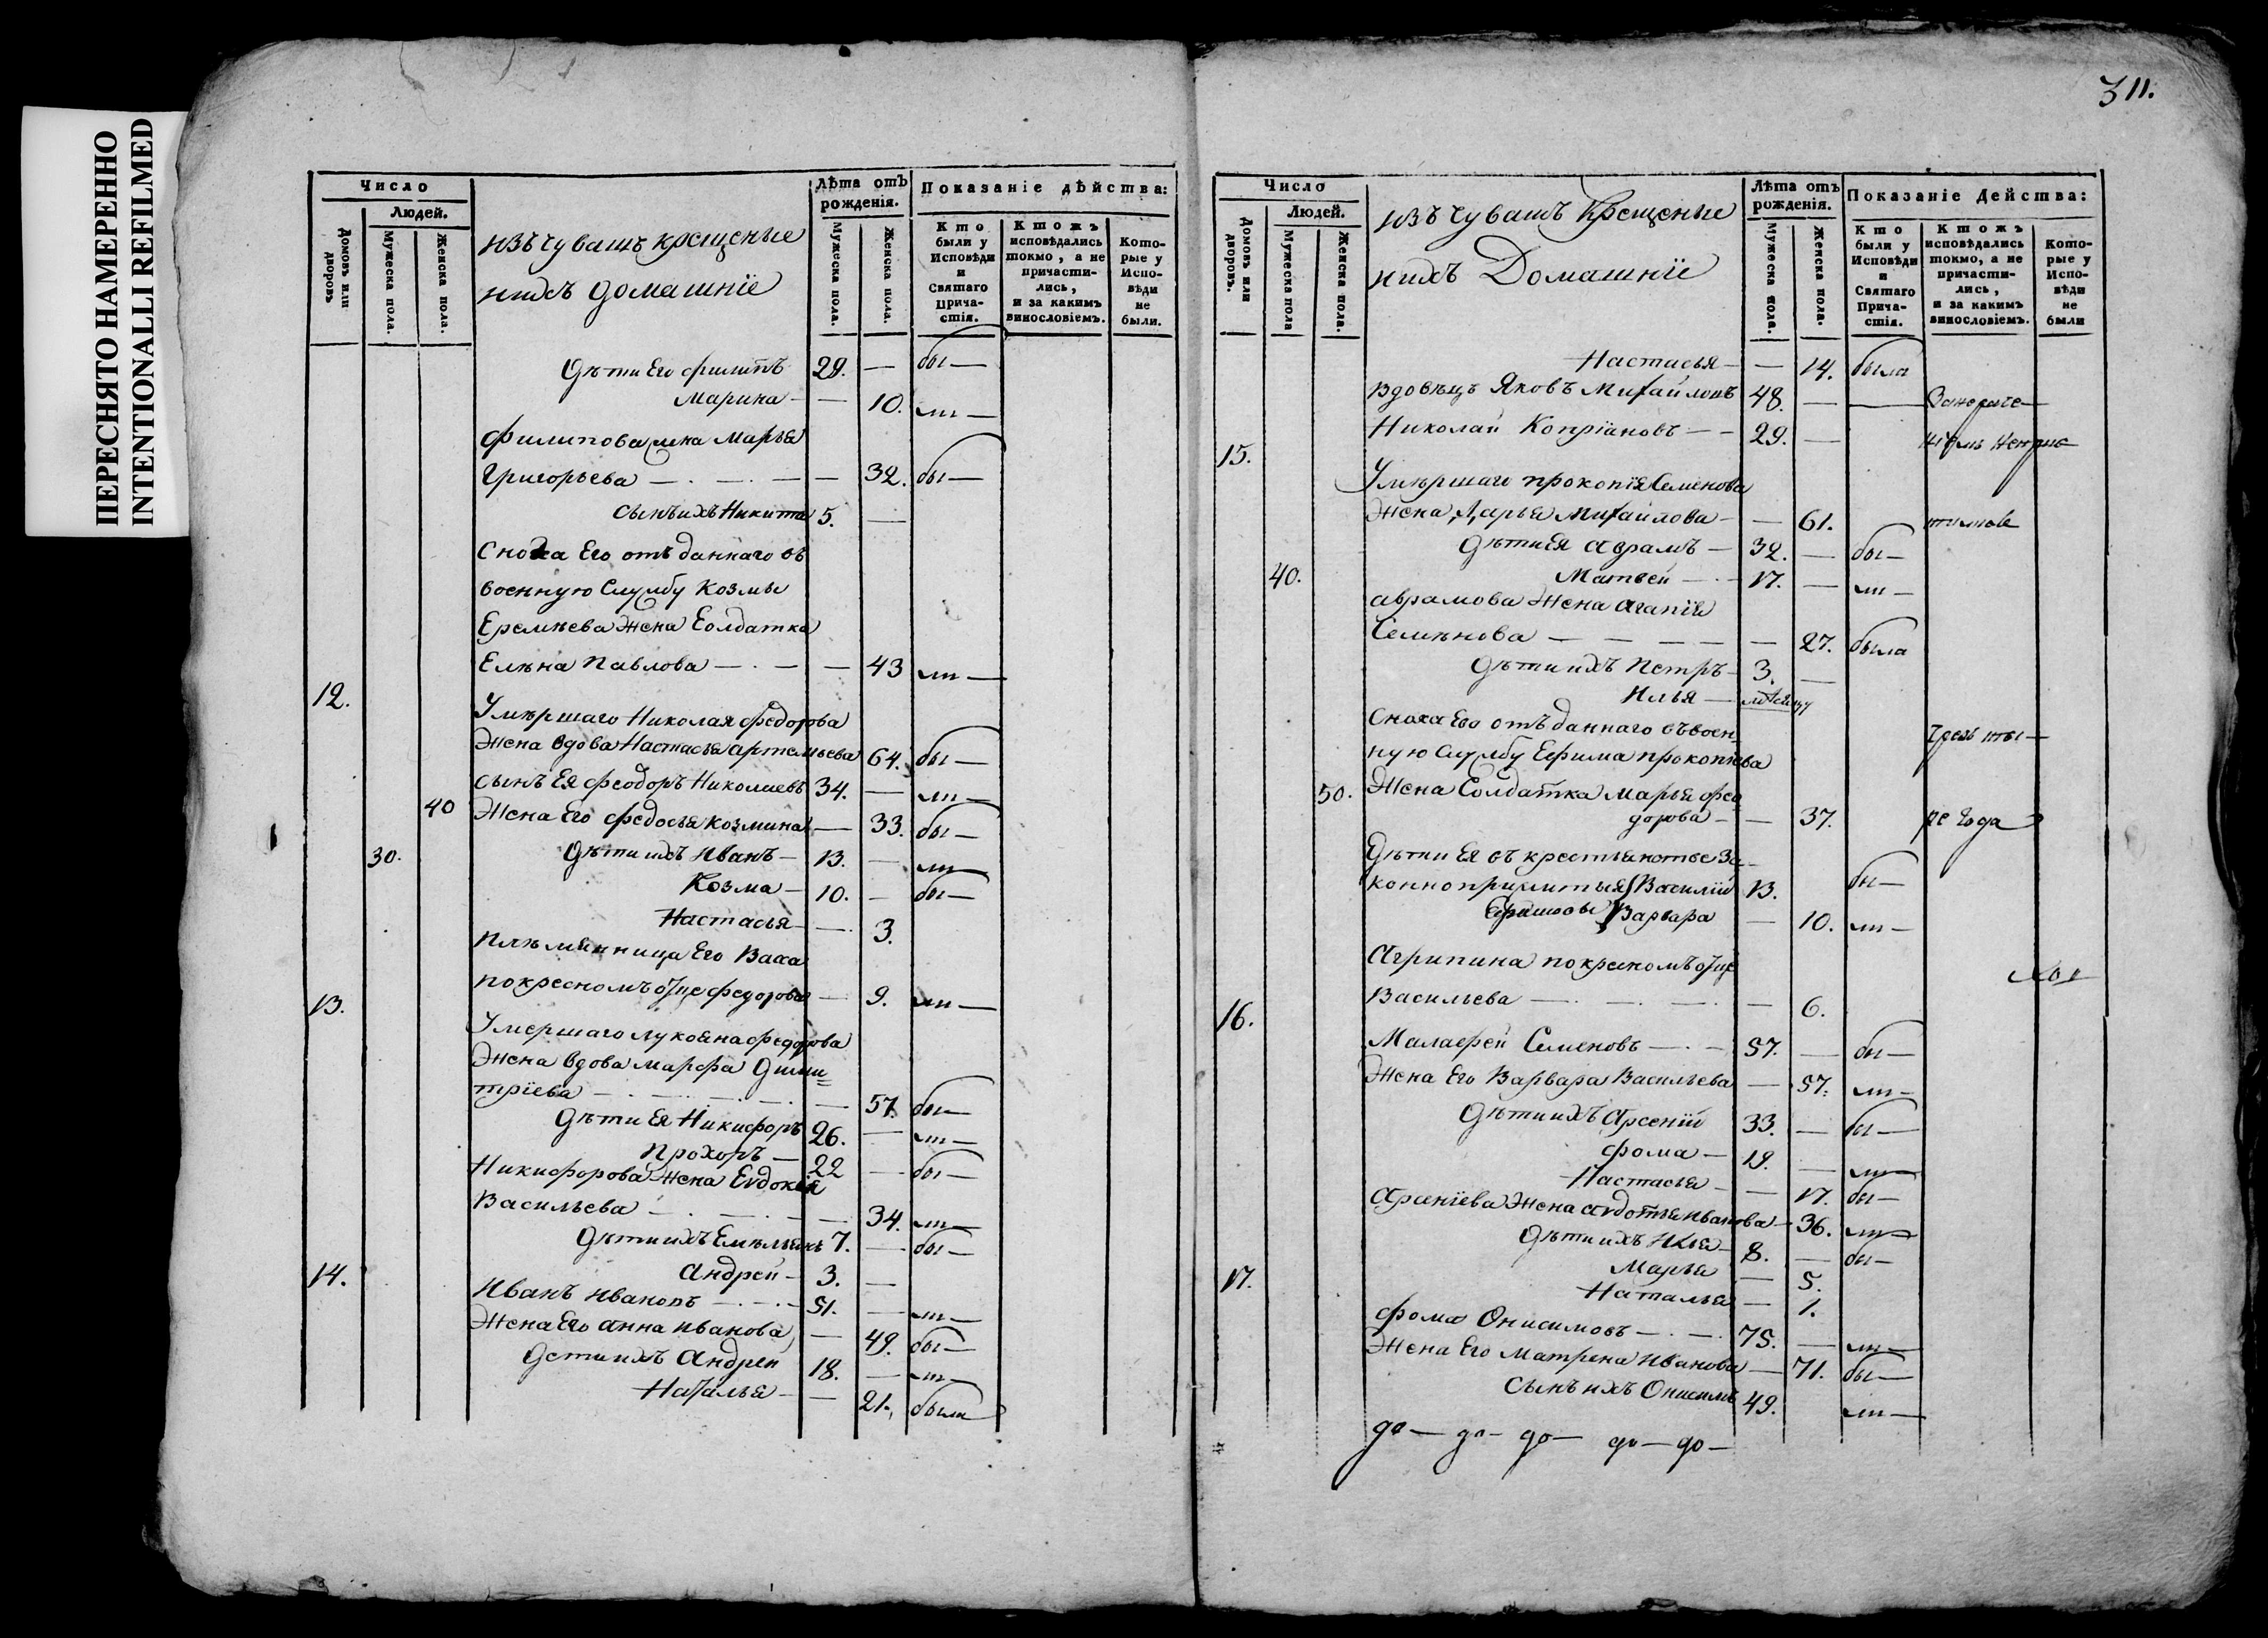 ПЕРЕСНЯТО НАМЕРЕННО
INTENTIONALLI REFILMED
Число
Людей.
Домовъ или дворовъ
Мужеска пола.
Женска пола.
изъ чувашъ крещеные
нихъ домашнїе
Лѣта отъ рожденія.
Мужеска пола.
Женска пола.
Показаніе дѣйства:
Кто были у Исповѣди и Святаго Прича-стія.
Ктожъ исповѣдались токмо, а не причасти-лись, и за какимъ винословіемъ.
Кото-рые у Испо-вѣди не были.
Дѣти Его филипъ 29. — бы —
Марина — — 10. ли —
Филипова жена Марья
Григорьева — — — 32. бы —
сынъ ихъ Никита 5. —
Сноха Его отъ даннаго въ
военную Службу Козмы
Еремѣева Жена Солдатка
Елѣна Павлова — — — 43 ли —
12.
Умѣршаго Николая федорова
Жена вдова Настасья артемьева 64. бы —
сынъ Ея феодоръ Николаевъ 34. — ли —
40 Жена Его федосья козмина — 33. бы —
30. Дѣти ихъ Иванъ — 13. — ли —
Козма — 10. — бы —
Настасья — — 3.
Плѣмянница Его Васса
покресномъ отце федорова — 9. ли —
13.
Умершаго лукояна федорова
Жена вдова марфа Дими=
трїева — — — 57. бы —
Дѣти Ея Никифоръ 26. — ли —
Прохоръ — 22 — бы —
Никифорова Жена Евдокия
Васильева — — — 34. ли —
Дѣти ихъ Емѣльянъ 7. — бы —
Андрей — 3. —
14.
Иванъ Ивановъ — — 51. — ли —
Жена Его анна иванова — 49. бы —
Дети ихъ Андрей 18. — ли —
Наталья — — 21. была
311.
Число
Людей.
Домовъ или дворовъ.
Мужеска пола
Женска пола.
изъ чувашъ Крещеные
нихъ Домашнїе
Лѣта отъ рожденія.
Мужеска пола.
Женска пола.
Показаніе Дейсшва:
Кто были у Исповѣди и Святаго Прича-стія.
Ктожъ исповѣдались токмо, а не причасти-лись, и за какимъ винословіемъ.
Кото-рые у Испо-вѣди не были
Настасья — — 14. была
Вдовѣцъ Яковъ Михайловъ 48. — —
Николай Копрїановъ — — 29. —
15.
Умѣршаго прокопїя Семенова
Жена Марья Михайлова — — 61.
Дѣти Ея аврамъ — 32. — бы —
40. Матвей — 17. — ли —
аврамова Жена агапїя
Семѣнова — — — — 27. была
Дѣти ихъ Петръ — 3. —
Илья —
Сноха Его отъ даннаго въ воен
ную Службу Ефима прокопїева
50. Жена Солдатка марья фео
дорова — — 37. ре года
Дѣти Ея въ крестьянстве за-
конноприжитыя Василїй 13. бы —
Ефимовы Варвара — 10. ли —
Агрипина покресномъ отце
Васильева — — — — 6.
16.
Малафей Семеновъ — — 57. — бы —
Жена Его Варвара Васильева — 57. ли —
Дѣти ихъ Арсенїй 33. — бы —
фома — 19. — ли —
Настасья — — 17. бы —
Арсенїева Жена авдотья иванова — 36. ли —
Дѣти ихъ Илья — 8. — бы —
Марья — 5.
Наталья — 1.
17.
фома Онисимовъ — — 75. — ли —
Жена Его Матрена Иванова — 71. бы —
Сынъ ихъ Онисимъ 49. ли —
до — до — до — до — до —